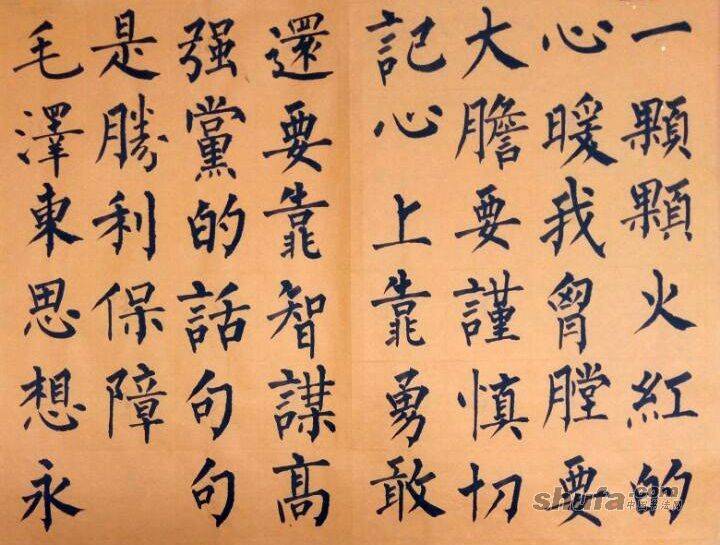 一顆顆火紅的
心暖我胷膛要
大膽要謹慎切
記心上靠勇敢
還要靠智謀高
强黨的話句句
是勝利保障
毛澤東思想永
shufa.com
中国书法网